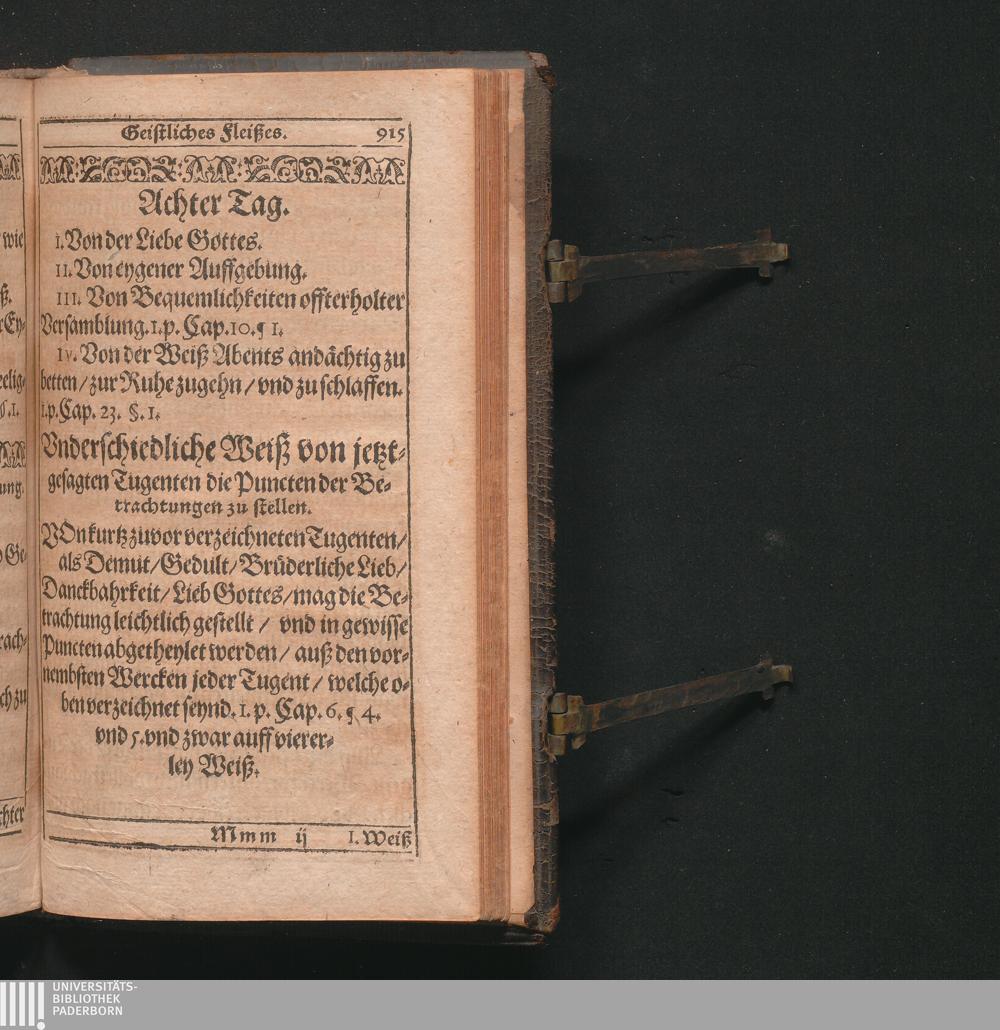 Geistliches Fleißes. 915
Achter Tag.
I. Von der Liebe Gottes.
II. Von eygener Auffgebung.
III. Von Bequemlichkeiten offterholter
Versamblung. I. p. Cap. 10. ¶ I.
IV. Von der Weiß Abents andächtig zu
betten / zur Ruhe zugehn / vnd zu schlaffen.
I. p. Cap. 23. §. I.
Vnderschiedliche Weiß von jetzt-
gesagten Tugenten die Puncten der Be-
trachtungen zu stellen.
VOn kurtz zuvor verzeichneten Tugenten /
als Demut / Gedult / Brüderliche Lieb /
Danckbahrkeit / Lieb Gottes / mag die Be-
trachtung leichtlich gestellt / vnd in gewisse
Puncten abgetheylet werden / auß den vor-
nembsten Wercken jeder Tugent / welche o-
ben verzeichnet seynd. I. p. Cap. 6. ¶ 4.
vnd 5. vnd zwar auff vierer-
ley Weiß.
Mmm ij I. Weiß
wie
ß.
Ey-
eelig-
§. I.
ung.
Ge-
rach-
ch zu
chter
UNIVERSITÄTS-
BIBLIOTHEK
PADERBORN